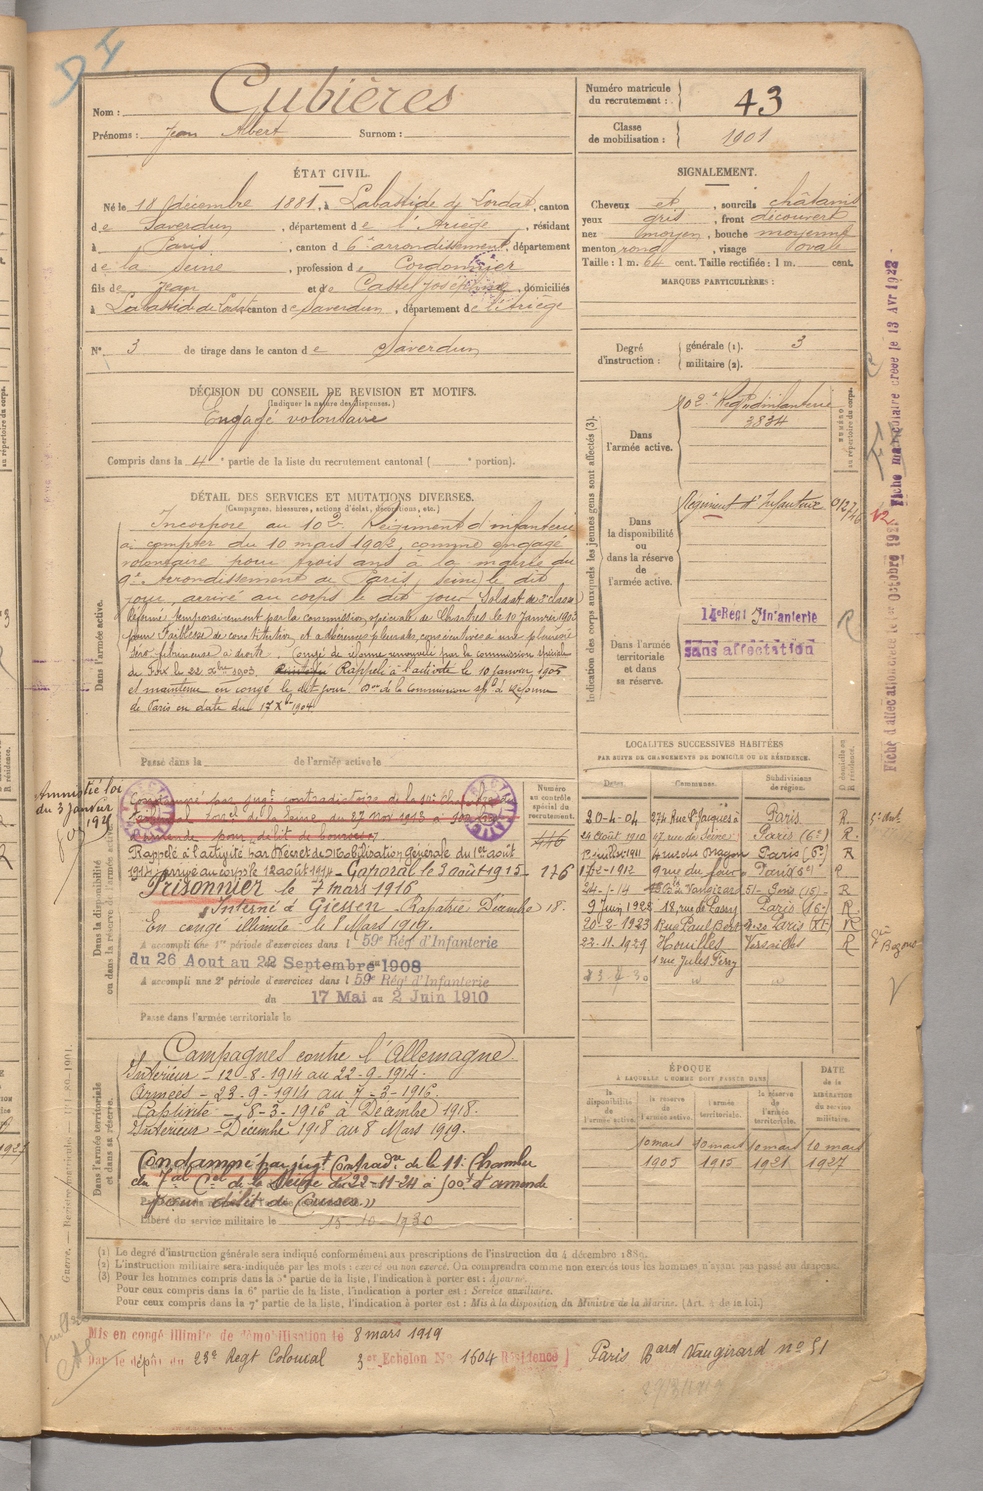 D I
Nom : Cubières
Prénoms : Jean Albert Surnom :
Numéro matricule du recrutement : 43
Classe de mobilisation : 1901
ÉTAT CIVIL.
Né le 18 décembre 1881, à Labastide de Lordat, canton
de Saverdun, département de l'Ariège, résidant
à Paris, canton d 6e arrondissement, département
de la Seine, profession de Cordonnier
fils de Jean et de Castel Joséphine, domiciliés
à Labastide de Lordat canton de Saverdun, département de l'Ariège
N° 3 de tirage dans le canton de Saverdun
SIGNALEMENT.
Cheveux et, sourcils châtains
yeux gris, front découvert
nez moyen, bouche moyenne
menton rond, visage ovale
Taille : 1 m. 64 cent. Taille rectifiée : 1 m. cent.
MARQUES PARTICULIÈRES :
Degré d'instruction : générale (1). 3
militaire (2).
DÉCISION DU CONSEIL DE REVISION ET MOTIFS.
(Indiquer la nature des dispenses.)
Engagé volontaire
Compris dans la 4e partie de la liste du recrutement cantonal ( e portion).
DÉTAIL DES SERVICES ET MUTATIONS DIVERSES.
(Campagnes, blessures, actions d'éclat, décorations, etc.)
Dans l'armée active.
Incorporé au 102e Régiment d'infanterie
à compter du 10 mars 1902, comme engagé
volontaire pour trois ans à la mairie du
9e Arrondissement de Paris, (Seine) le dit
jour, arrivé au corps le dit jour Soldat de 2e classe
Réformé temporairement par la commission spéciale de Chartres le 10 Janvier 1903
pour Faiblesse de constitution, et adhérences pleurales, consécutives à une pleurésie
séro-fibrineuse à droite. Congé de réforme renouvelé par la commission spéciale
de Foix le 22 Xbre 1903. Rappelé à l'activité le 10 janvier 1905
et maintenu en congé le dit jour. Don de la Commission sple de Réforme
de Paris en date du 17 Xbre 1904
Passé dans la de l'armée active le
Indication des corps auxquels les jeunes gens sont affectés (3).
Dans l'armée active. 102e Régt d'infanterie
3834
NUMÉRO au répertoire du corps.
Dans la disponibilité ou dans la réserve de l'armée active. Régiment d'Infanterie
Dans l'armée territoriale et dans sa réserve. 14e Regt d'Infanterie
sans affectation
Fiche matriculaire créée le 13 Avr 1922
Amnistié loi
du 3 janvier
1925
Dans la disponibilité ou dans la réserve de l'armée active.
Numéro au contrôle spécial du recrutement.
416
176
Condamné par jugt contradictoire de la
Tribunal correl de la Seine, du 27 Nov 1913 à
d'amende pour délit de
Rappelé à l'activité par Décret de Mobilisation générale du 1er août
1914 arrivé au corps le 12 août 1914 - Caporal le 3 août 1915 -
Prisonnier le 7 mars 1916
Interné à Giessen Rapatrié Décembre 18.
En congé illimité le 8 Mars 1919.
A accompli une 1re période d'exercices dans l 59e Rég d'Infanterie
du 26 Aout au 22 Septembre 1908
A accompli une 2e période d'exercices dans l 59e Régt d'Infanterie
du 17 Mai au 2 Juin 1910
Passé dans l'armée territoriale le
LOCALITÉS SUCCESSIVES HABITÉES
PAR SUITE DE CHANGEMENTS DE DOMICILE OU DE RÉSIDENCE.
Dates. Communes. Subdivisions de région. Domicile ou résidence.
20-4-04 274, Rue St Jacques à Paris R.
24 Août 1910 67 rue de Seine Paris (6e) R.
1er juillet 1911 4 rue du Dragon Paris (6e) R
1912 9 rue du four Paris 6e R
24-1-14 Bd de Vaugirard 51 - Paris (15) - R
9 Juin 1922 18, rue de Passy Paris (16e) R
20-2-1923 1 rue Paul Bert Paris (XI) R
22.11.1929 Houilles Versailles R
1 rue Jules Ferry
Dans l'armée territoriale et dans sa réserve.
Campagnes contre l'Allemagne
Intérieur - 12-8-1914 au 22-9-1914.
Armées - 23-9-1914 au 7-3-1916.
Captivité - 8-3-1916 à Décembre 1918.
Intérieur - Décembre 1918 au 8 Mars 1919.
Condamné par jugt Contradre de la 11e Chambre
du Tal Cel de la Seine du 22-11-24 à 500f d'amende
pour délit de Courses
Libéré du service militaire le 15-10-1930
ÉPOQUE
À LAQUELLE L'HOMME DOIT PASSER DANS
la disponibilité de l'armée active. la réserve de l'armée active. l'armée territoriale. la réserve de l'armée territoriale. DATE de la LIBÉRATION du service militaire.
10 mars 10 mars 10 mars 10 mars
1905 1915 1921 1927
Guerre. — Registre matricule.
(1) Le degré d'instruction générale sera indiqué conformément aux prescriptions de l'instruction du 4 décembre 1889.
(2) L'instruction militaire sera indiquée par les mots : exercé ou non exercé. On comprendra comme non exercés tous les hommes n'ayant pas passé au drapeau.
(3) Pour les hommes compris dans la 5e partie de la liste, l'indication à porter est : Ajourné.
Pour ceux compris dans la 6e partie de la liste, l'indication à porter est : Service auxiliaire.
Pour ceux compris dans la 7e partie de la liste, l'indication à porter est : Mis à la disposition du Ministre de la Marine. (Art. 4 de la loi.)
Mis en congé illimité de démobilisation le 8 mars 1919
par le dépôt du 23e Regt Colonial 3e Echelon N° 1604 Résidence } Paris Bard Vaugirard n° 51